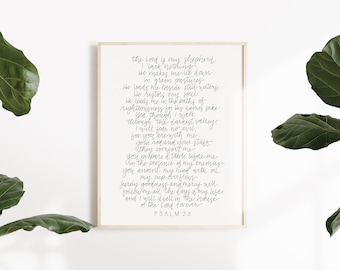 the Lord is my shepherd,
I lack nothing.
He makes me lie down
in green pastures,
He leads me beside still waters,
He restores my soul.
He leads me in the paths of
righteousness for his name's sake.
Even though I walk
through the darkest valley,
I will fear no evil,
for you are with me
your rod and your staff,
they comfort me.
You prepare a table before me
in the presence of my enemies
you anoint my head with oil,
my cup overflows.
Surely goodness and mercy will
follow me all the days of my life
and I will dwell in the house
of the Lord forever.
PSALM 23